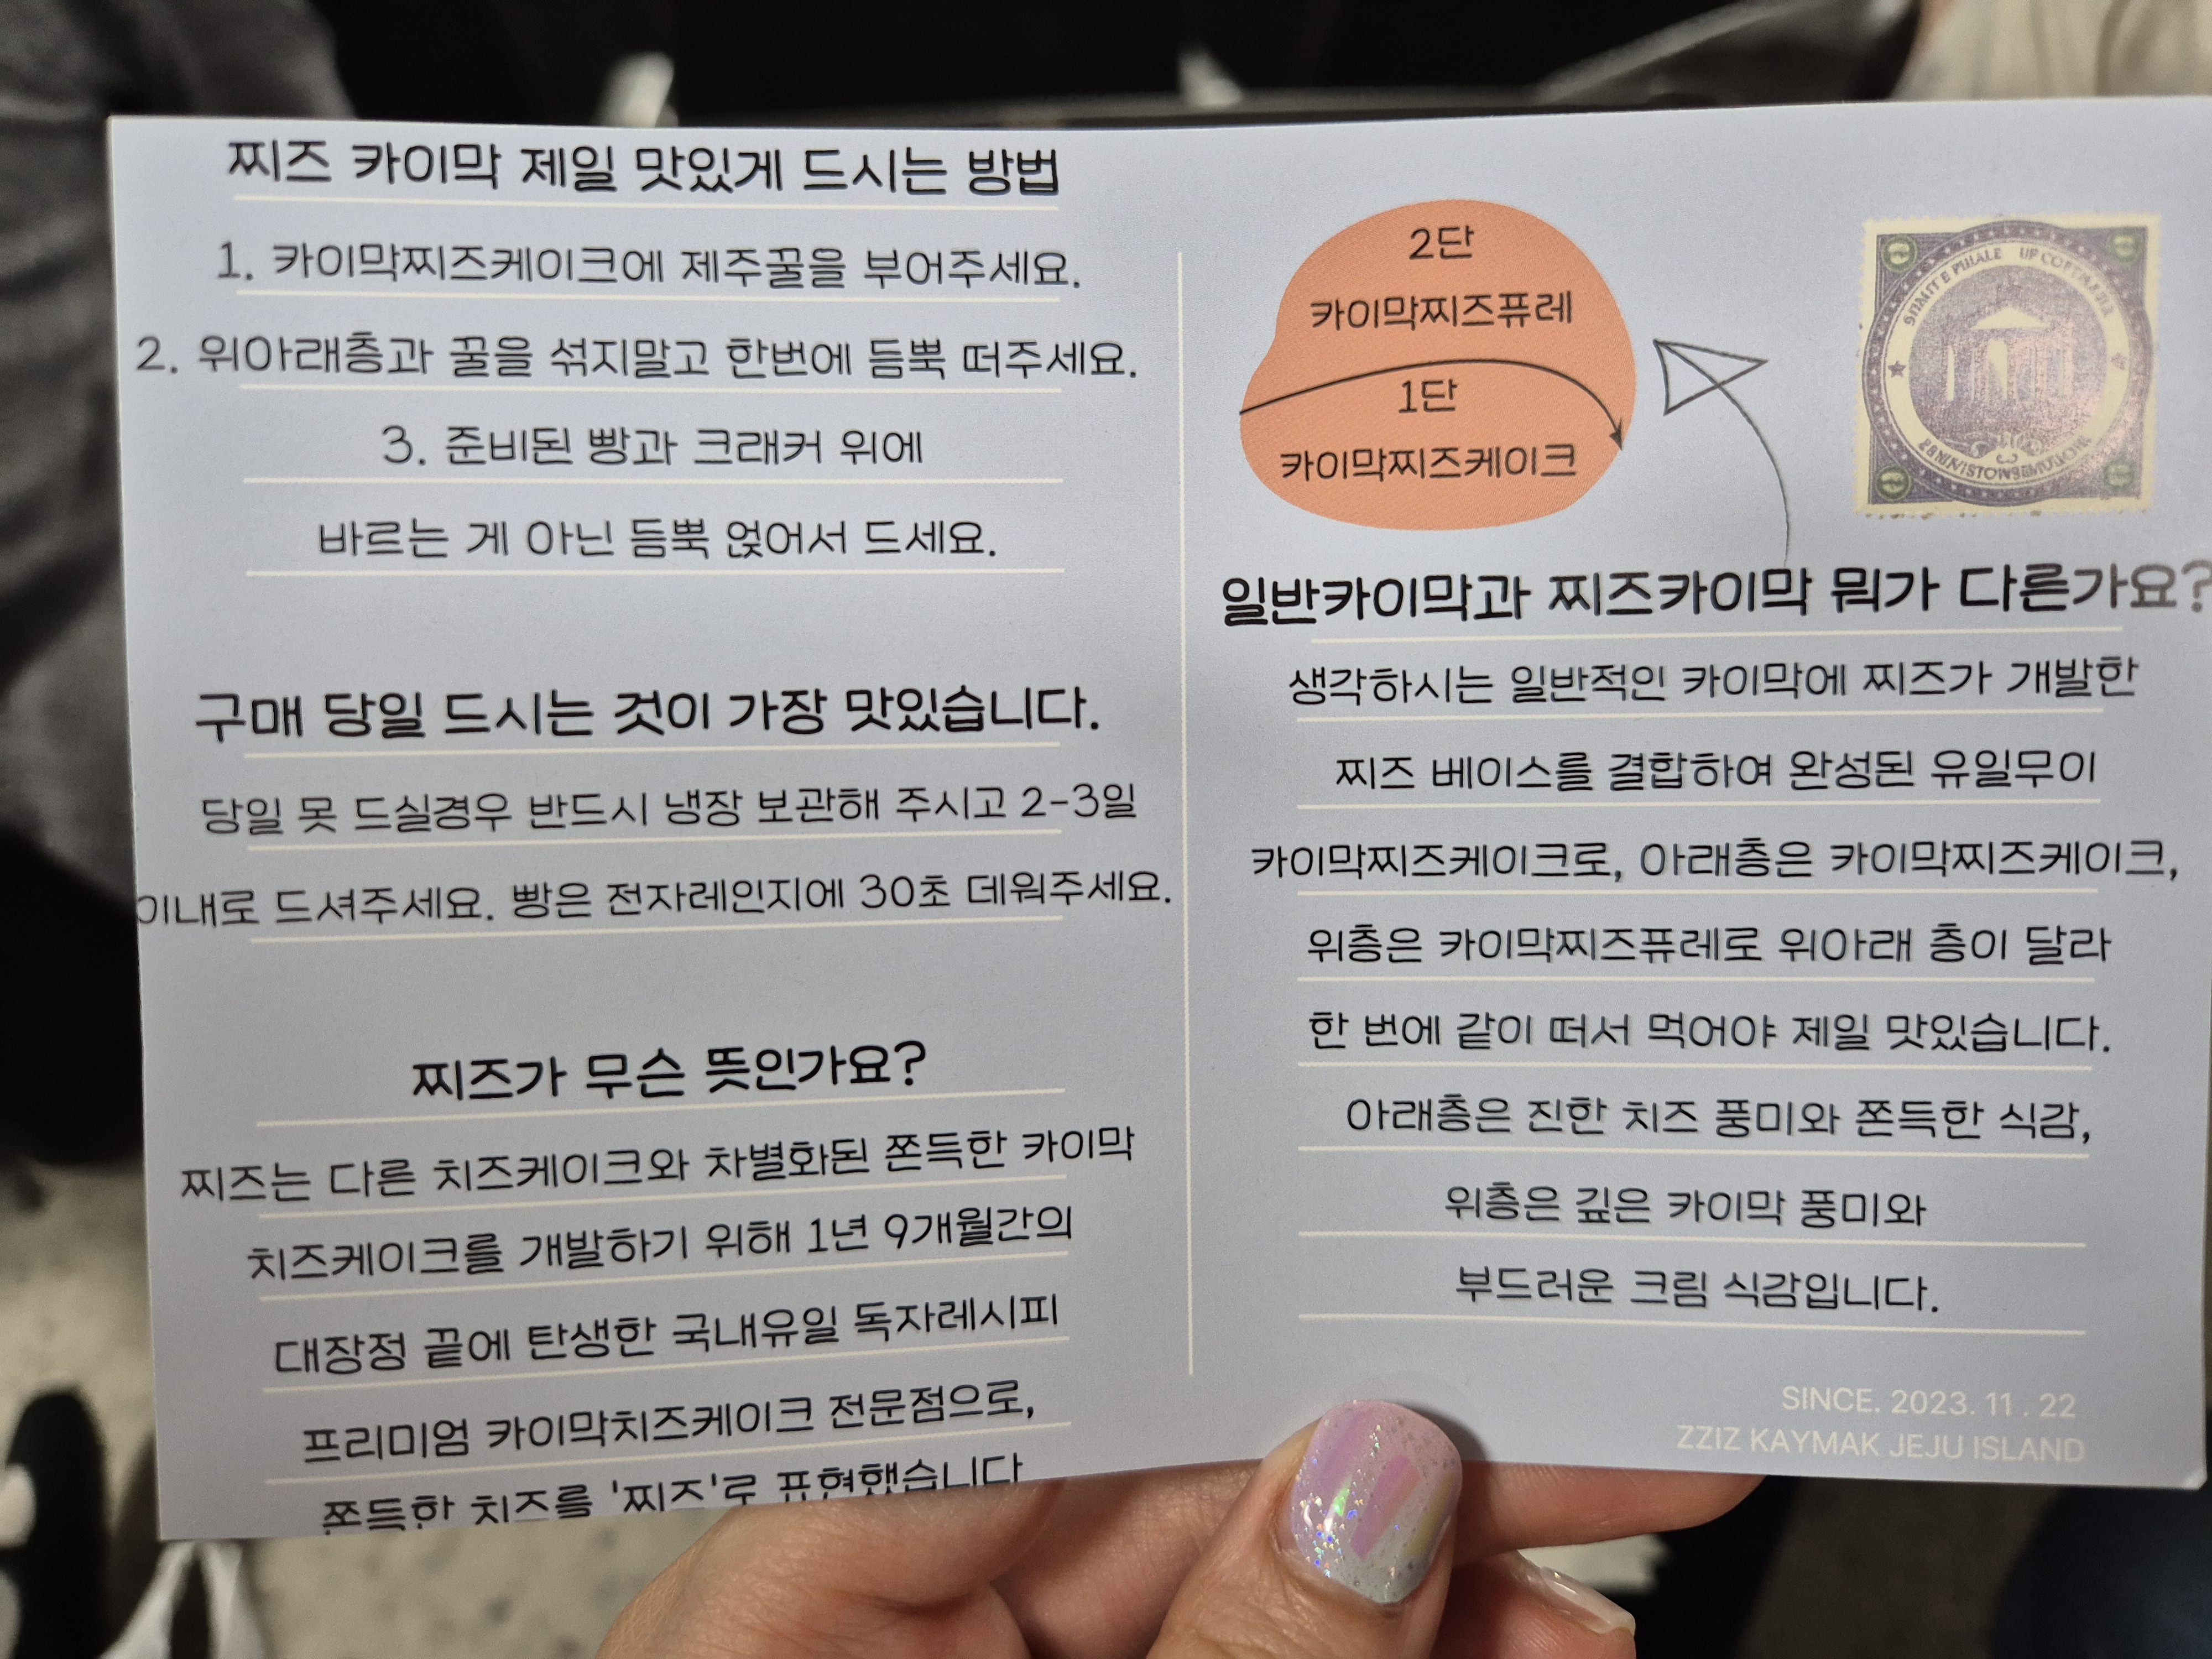 찌즈 카이막 제일 맛있게 드시는 방법
1. 카이막찌즈케이크에 제주꿀을 부어주세요.
2. 위아래층과 꿀을 섞지말고 한번에 듬뿍 떠주세요.
3. 준비된 빵과 크래커 위에
바르는 게 아닌 듬뿍 얹어서 드세요.
구매 당일 드시는 것이 가장 맛있습니다.
당일 못 드실경우 반드시 냉장 보관해 주시고 2-3일
이내로 드셔주세요. 빵은 전자레인지에 30초 데워주세요.
찌즈가 무슨 뜻인가요?
찌즈는 다른 치즈케이크와 차별화된 쫀득한 카이막
치즈케이크를 개발하기 위해 1년 9개월간의
대장정 끝에 탄생한 국내유일 독자레시피
프리미엄 카이막치즈케이크 전문점으로,
쫀득한 치즈를 '찌즈'로 표현했습니다
2단
카이막찌즈퓨레
1단
카이막찌즈케이크
일반카이막과 찌즈카이막 뭐가 다른가요?
생각하시는 일반적인 카이막에 찌즈가 개발한
찌즈 베이스를 결합하여 완성된 유일무이
카이막찌즈케이크로, 아래층은 카이막찌즈케이크,
위층은 카이막찌즈퓨레로 위아래 층이 달라
한 번에 같이 떠서 먹어야 제일 맛있습니다.
아래층은 진한 치즈 풍미와 쫀득한 식감,
위층은 깊은 카이막 풍미와
부드러운 크림 식감입니다.
SINCE. 2023. 11 . 22
ZZIZ KAYMAK JEJU ISLAND